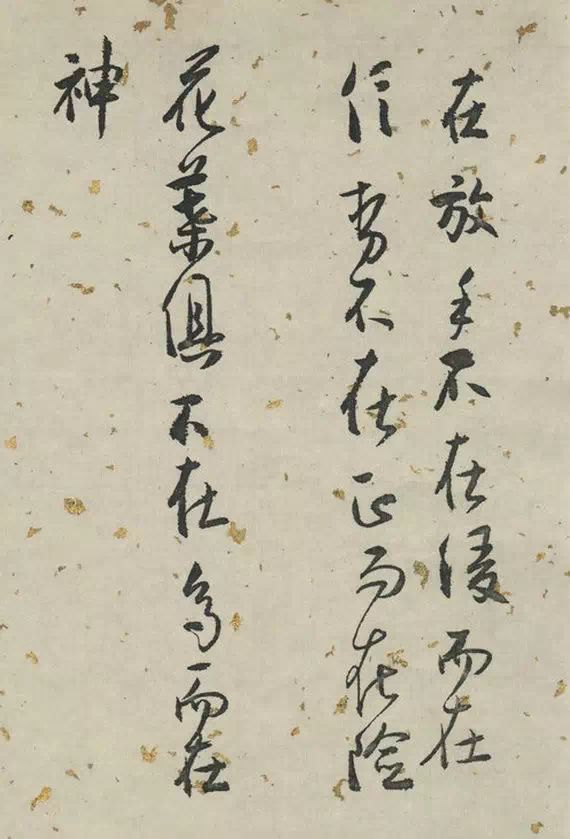 在放手不在缓而在
信势不在正而在险
花葉俱不在多而在
神